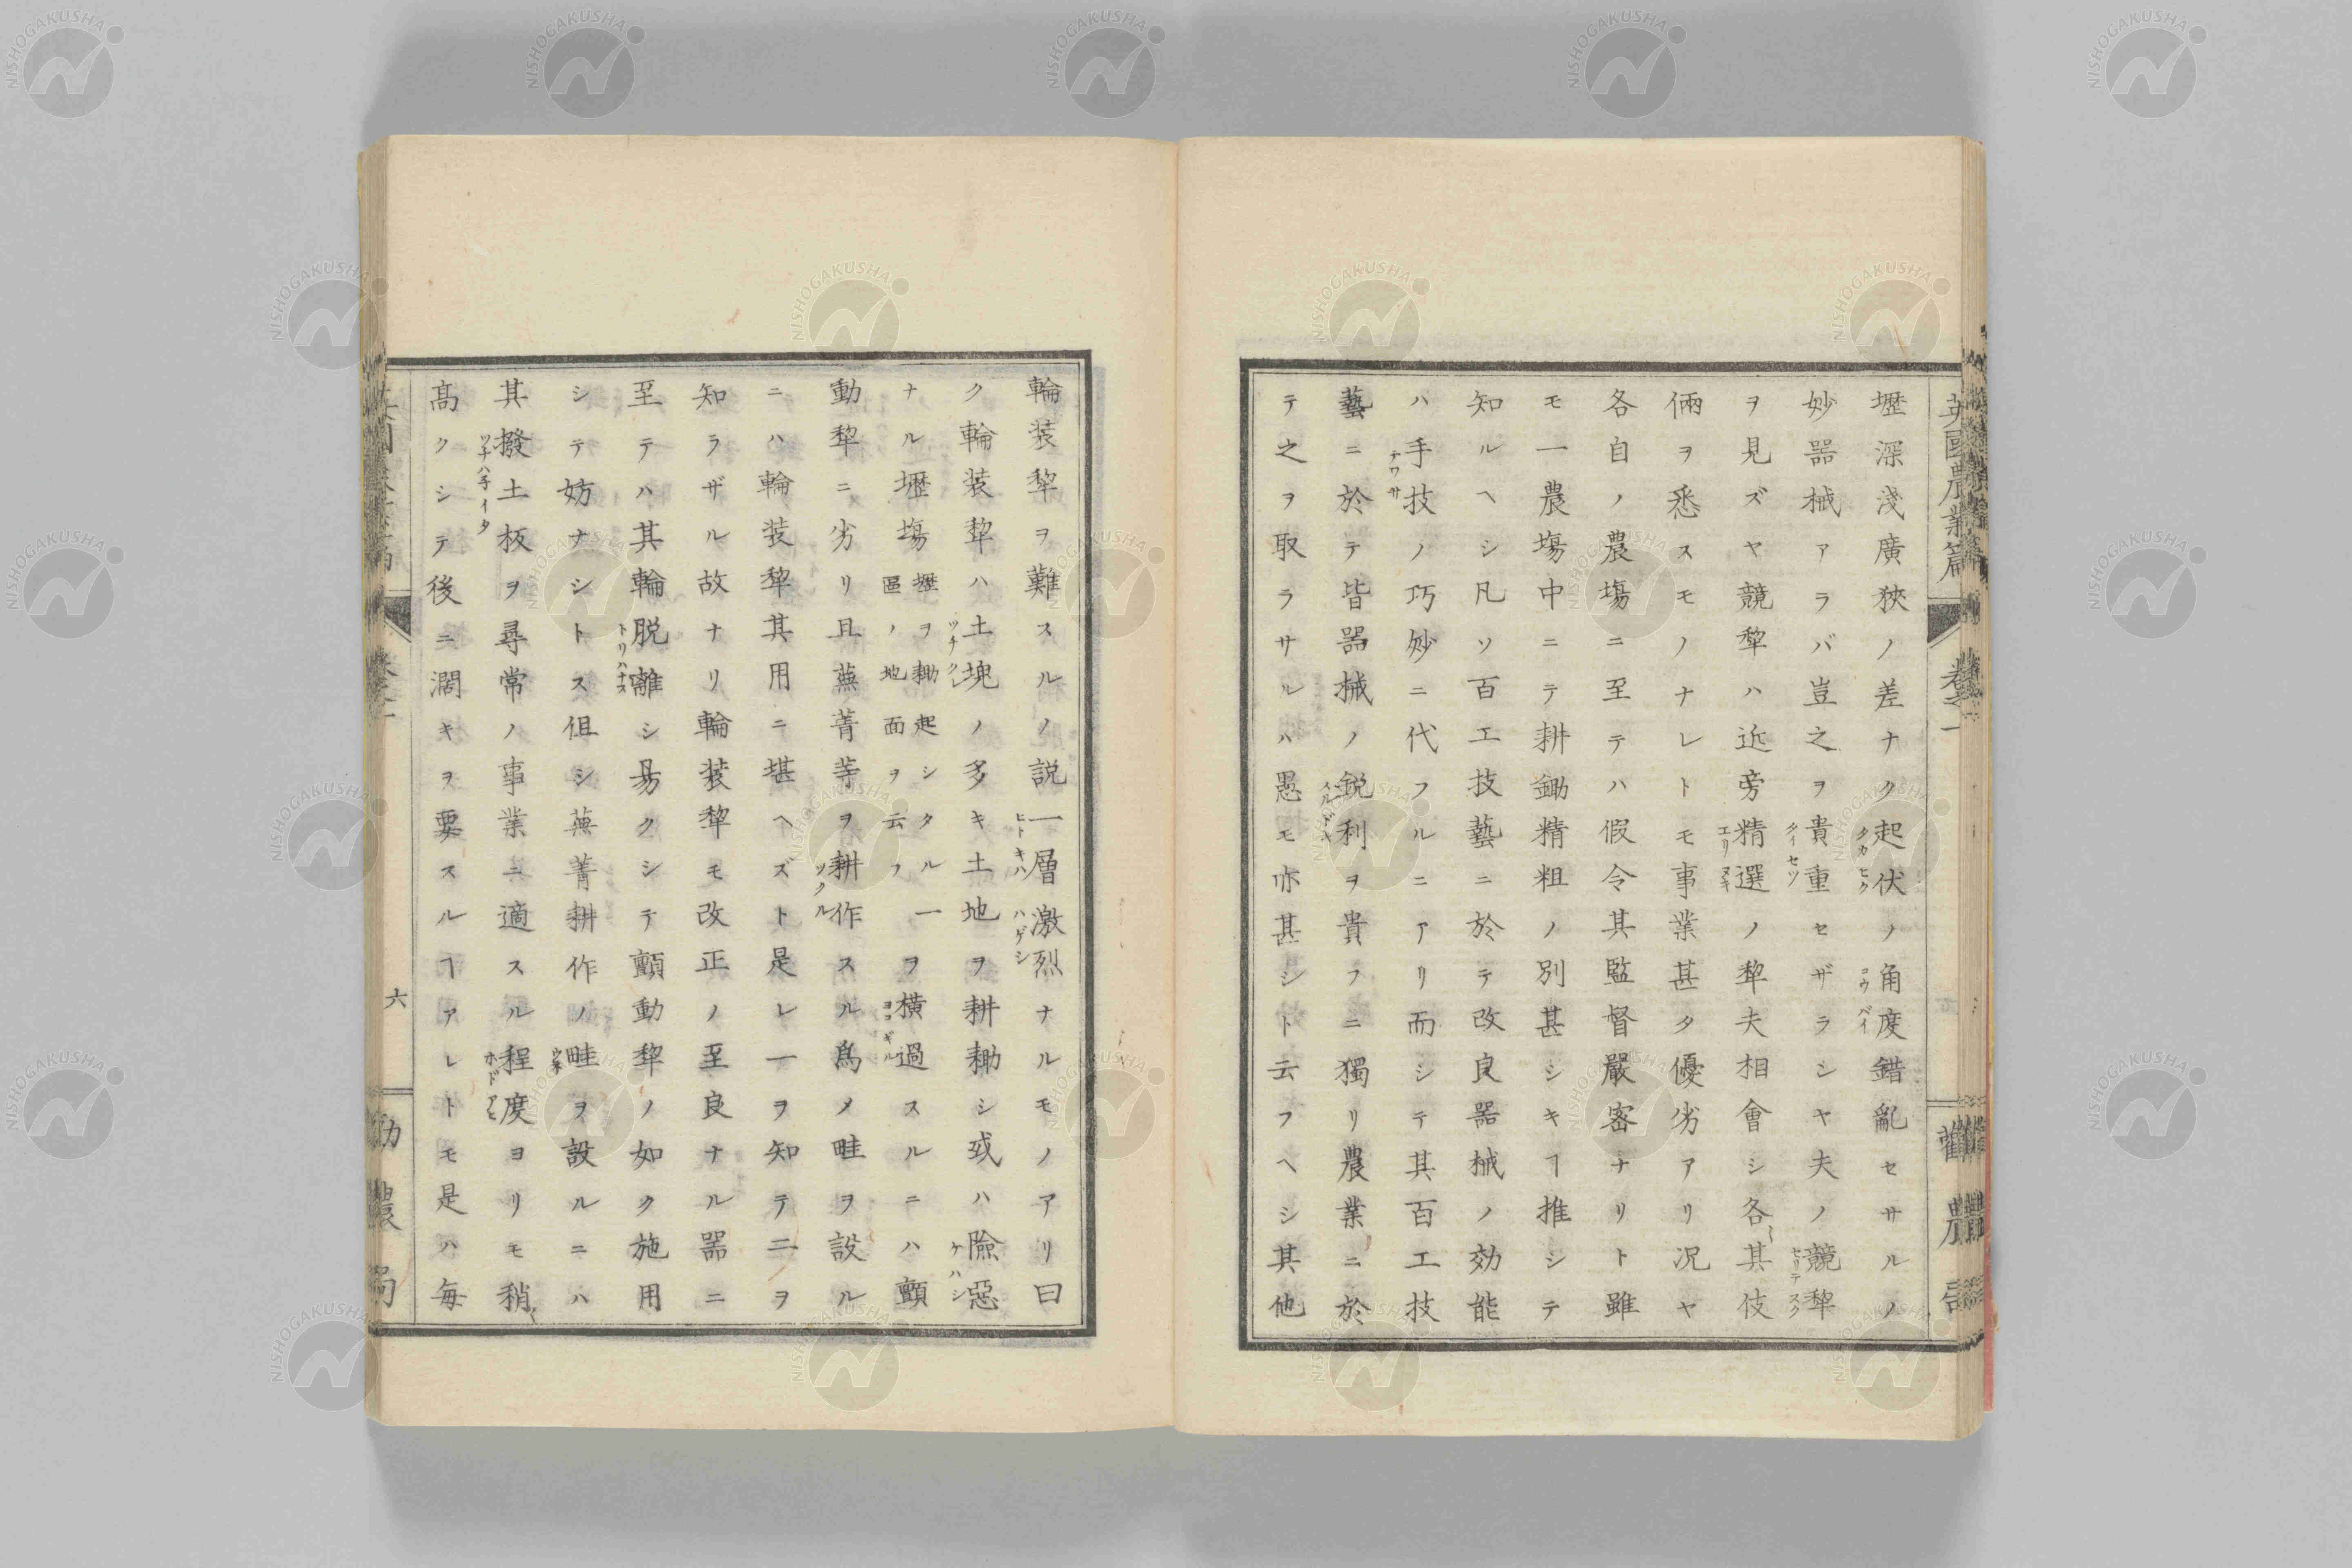 英國農業篇 卷之一 勸農局
壢深淺廣狹ノ差ナク起伏ノ角度錯亂セサルノ
妙器械アラバ豈之ヲ貴重セザラシヤ夫ノ競犂
ヲ見ズヤ競犂ハ近旁精選ノ犂夫相會シ各其伎
倆ヲ悉スモノナレトモ事業甚タ優劣アリ况ヤ
各自ノ農塲ニ至テハ假令其監督嚴密ナリト雖
モ一農塲中ニテ耕鋤精粗ノ別甚シキヿ推シテ
知ルヘシ凡ソ百工技藝ニ於テ改良器械ノ効能
ハ手技ノ巧妙ニ代フルニアリ而シテ其百工技
藝ニ於テ皆器械ノ鋭利ヲ貴フニ獨リ農業ニ於
テ之ヲ取ラサルハ愚モ亦甚シト云フヘシ其他
輪装犂ヲ難スルノ説一層激烈ナルモノアリ曰
ク輪装犂ハ土塊ノ多キ土地ヲ耕耡シ或ハ險惡
ナル壢塲壢ヲ耡起シタル一區ノ地面ヲ云フヲ横過スルニハ顫
動犂ニ劣リ且蕪菁等ヲ耕作スル爲メ畦ヲ設ル
ニハ輪装犂其用ニ堪ヘズト是レ一ヲ知テ二ヲ
知ラザル故ナリ輪装犂モ改正ノ至良ナル器ニ
至テハ其輪脱離シ易クシテ顫動犂ノ如ク施用
シテ妨ナシトス但シ蕪菁耕作ノ畦ヲ設ルニハ
其撥土板ヲ尋常ノ事業ニ適スル程度ヨリモ稍
髙クシテ後ニ濶キヲ要スルヿアレトモ是ハ毎
六